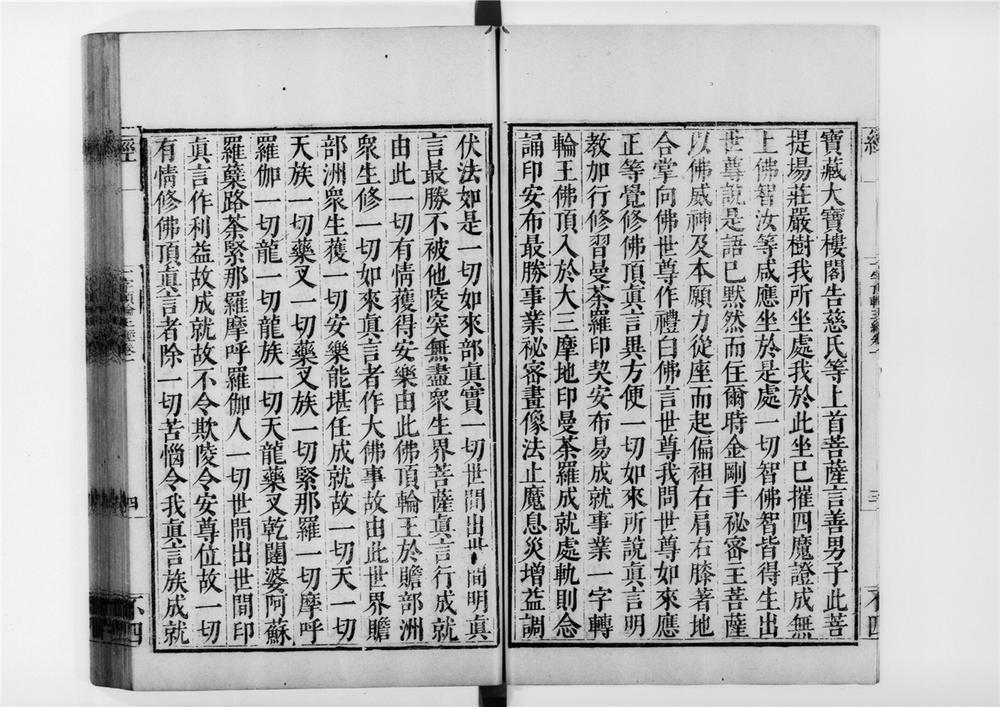 寶藏大寶樓閣告慈氏等上首菩薩言善男子此菩
提場莊嚴樹我所坐處我於此坐已摧四魔證成無
上佛智汝等咸應坐於是處一切智佛智皆得生出
世尊說是語已默然而住爾時金剛手祕密主菩薩
以佛威神及本願力從座而起偏袒右肩右膝著地
合掌向佛世尊作禮白佛言世尊我問世尊如來應
正等覺修佛頂真言異方便一切如來所說真言明
教加行修習曼荼羅印契安布易成就事業一字轉
輪王佛頂入於大三摩地印曼荼羅成就處軌則念
誦印安布最勝事業祕密畫像法止魔息災增益調
伏法如是一切如來部真實一切世間出世間明真
言最勝不被他陵突無盡眾生界菩薩真言行成就
由此一切有情獲得安樂由此佛頂輪王於贍部洲
眾生修一切如來真言者作大佛事故由此世界贍
部洲眾生獲一切安樂能堪任成就故一切天一切
天族一切藥叉一切藥叉族一切緊那羅一切摩呼
羅伽一切龍一切龍族一切天龍藥叉乾闥婆阿蘇
羅蘗路荼緊那羅摩呼羅伽人一切世間出世間印
真言作利益故成就故不令欺陵令安尊位故一切
有情修佛頂真言者除一切苦惱令我真言族成就
經
三
四